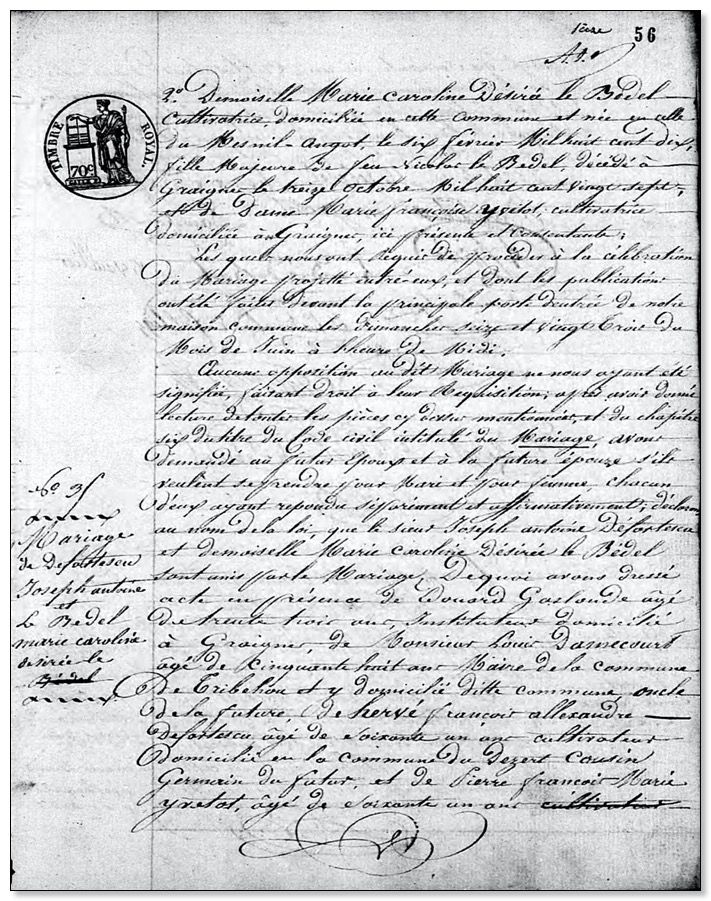 56
TIMBRE ROYAL.
70c
2.° Demoiselle Marie Caroline Désirée le Bédel
Cultivatrice domiciliée en cette Commune et née en celle
du Mesnil-angot, le six février Mil huit cent dix,
fille Majeure de feu Nicolas le Bedel, décédé à
Graignes le treize octobre Mil huit cent vingt sept,
et de Dame Marie françoise yvetot, cultivatrice
domiciliée à Graignes, ici présente et consentante;
Les quels nous ont Requis de procéder à la célébration
du Mariage projetté entr'eux, et dont les publications
ont été faites devant la principale porte d'entrée de notre
maison commune les dimanches seize et vingt trois du
Mois de Juin à l'heure de Midi.
Aucune opposition au dit Mariage ne nous ayant été
signifiée, faisant droit à leur Requisition; après avoir donné
lecture de toutes les pièces cy dessus mentionnées, et du chapitre
six du titre du Code civil intitulé du Mariage, avons
demandé au futur Epoux et à la future épouze s'ils
veulent se prendre pour Mari et pour femme, chacun
d'eux ayant repondu séparément et affirmativement; déclarons
au nom de la loi, que le sieur Joseph antoine Defortescu
et demoiselle Marie caroline désirée le Bédel
sont unis par le Mariage, De quoi avons dressé
acte en présence de Edouard Gaslonde âgé
de trente trois ans, Instituteur domicilié
à Graignes, de Monsieur Louis Damecourt
âgé de Cinquante huit ans Maire de la commune
De Tribehou et y domicilié ditte commune, oncle
de la future, de hervé françois allexandre
defortescu âgé de soixante un ans cultivateur
domicilié en la commune du Dezert Cousin
Germain du futur, et de Pierre françois Marie
yvetot, âgé de soixante un ans cultivateur
N.° 35
Mariage
de Defortescu
Joseph antoine
et
Le Bedel
marie caroline
désirée le
Bédel